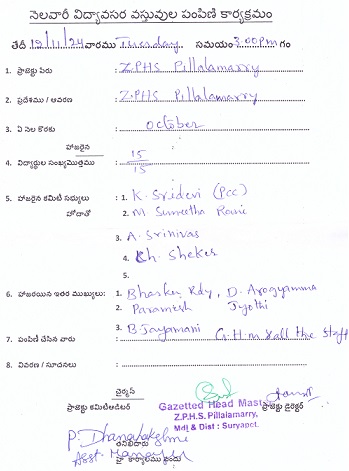 నెలవారీ విద్యావసర వస్తువుల పంపిణి కార్యక్రమం
తేదీ 12/11/24 వారము Tuesday సమయం 3:00 PM గం
1. ప్రాజెక్టు పేరు : Z.P.H.S Pillalamarry
2. ప్రదేశము / ఆవరణ : Z.P.H.S Pillalamarry
3. ఏ నెల కొరకు : october
హాజరైన
4. విద్యార్థుల సంఖ్య/మొత్తము : 15/15
5. హాజరైన కమిటి సభ్యులు : 1. K. Sridevi (PCC)
హోదాతో 2. M Sumeetha Rani
3. A. Srinivas
4. Ch. Sheker
5.
6. హాజరయిన ఇతర ముఖ్యులు: 1. Bhasker Rdy, D. Arogyamma
2. Paramesh Jyothi
3. B Jayamani G.H.M & all the staff
7. పంపిణి చేసిన వారు :
8. వివరణ / సూచనలు :
ప్రాజెక్టు కమిటిఆడిటర్ Gazetted Head Mast ప్రాజెక్టు డైరెక్టర్
Z.P.H.S. Pillalamarry.
Mdl & Dist : Suryapet.
P. Dhanalakshmi
Asst. Manager